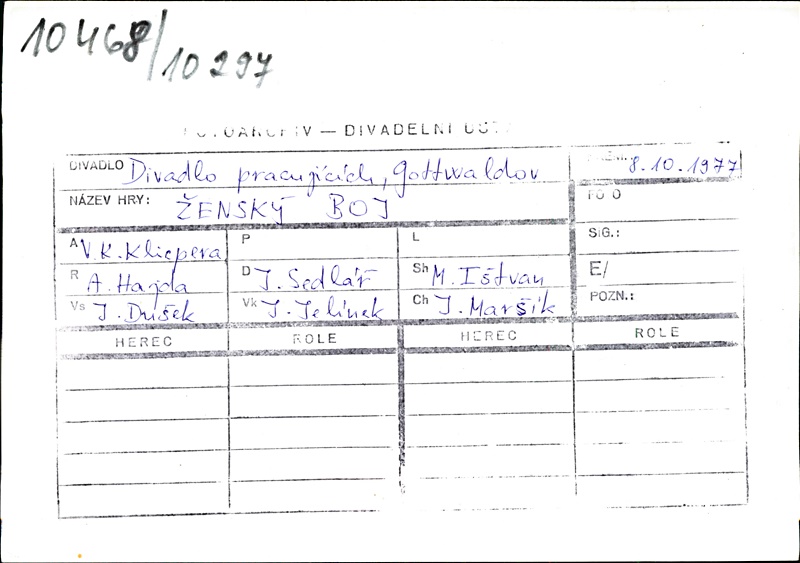 10468/10297
FOTOARCHIV — DIVADELNÍ ÚST
DIVADLO Divadlo pracujících, Gottwaldov
8.10.1977
NÁZEV HRY: ŽENSKÝ BOJ
FOTO
A V. K. Klicpera P L SIG.:
R A. Hajda D J. Sedlář Sh M. Ištvan E/
Vs J. Dušek Vk J. Jelínek Ch J. Maršík POZN.:
HEREC ROLE HEREC ROLE